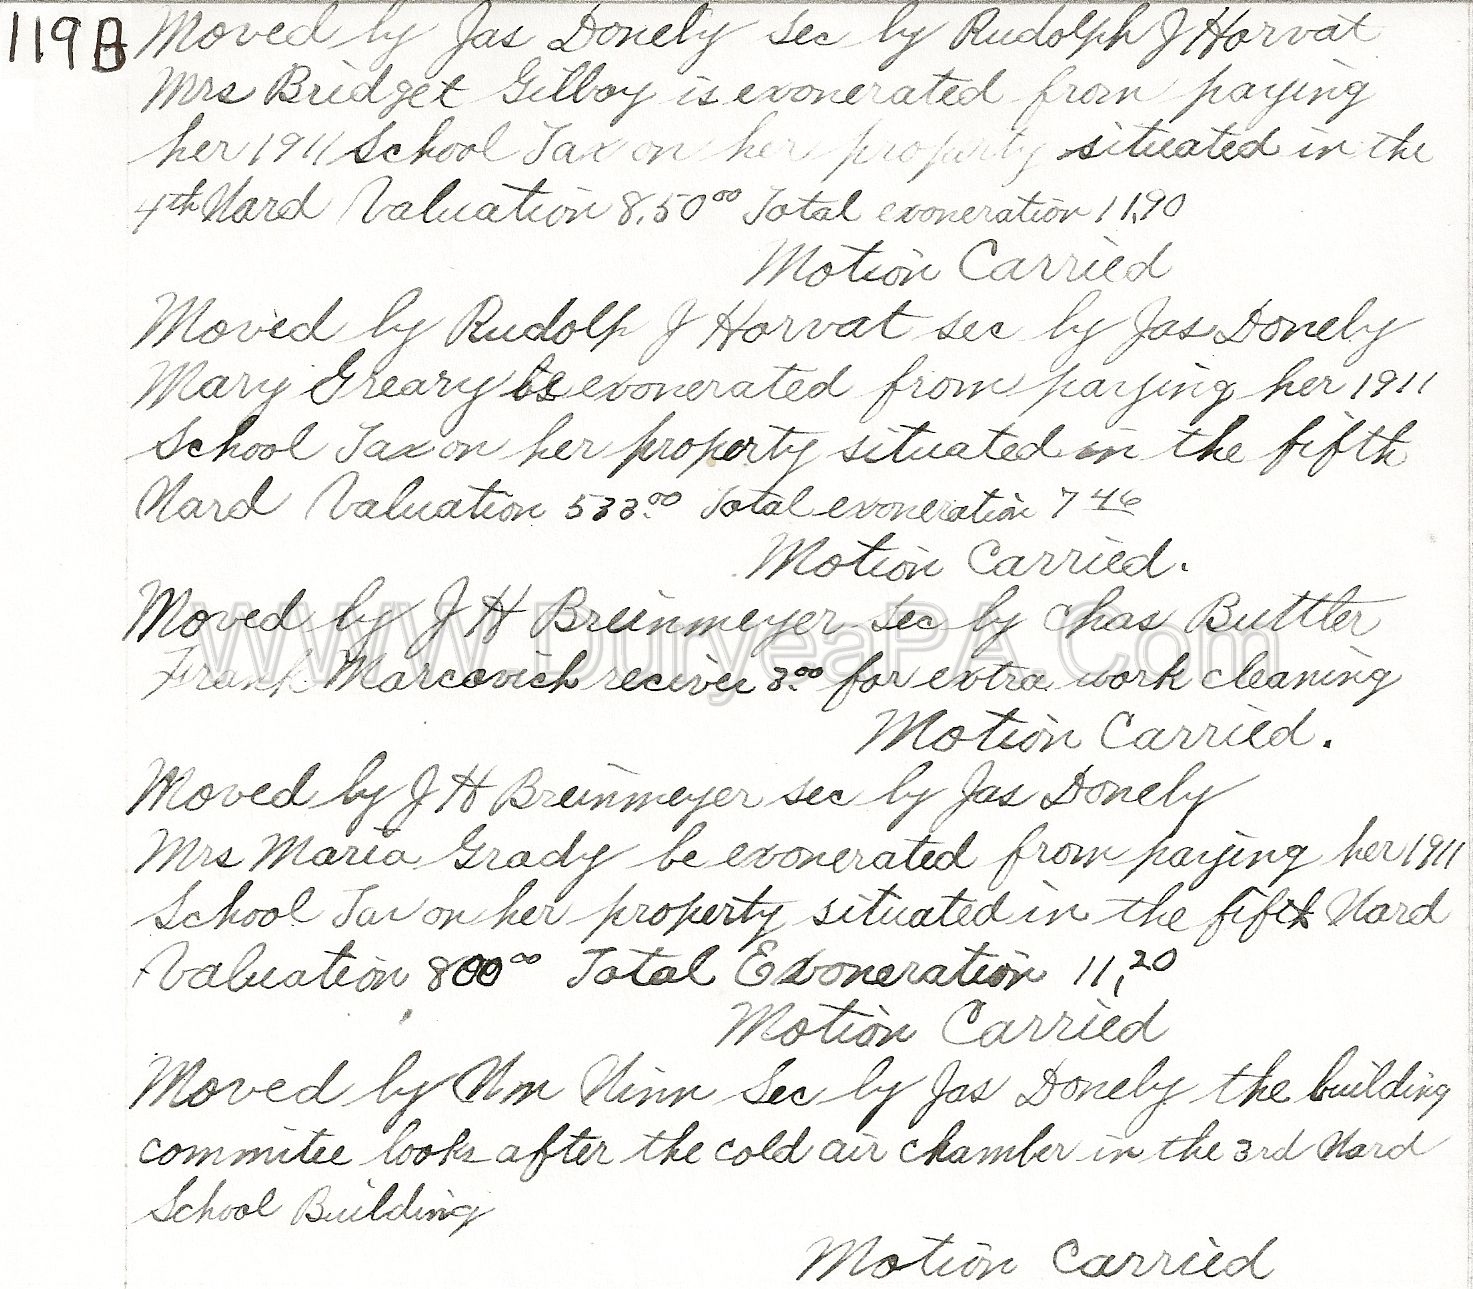 119B
Moved by Jas Donely Sec by Rudolph J Horvat
Mrs Bridget Gilboy is exonerated from paying
her 1911 School Tax on her property situated in the
4th Ward Valuation 8,50⁰⁰ Total exoneration 11,90
Motion Carried
Moved by Rudolph J Horvat sec by Jas Donely
Mary Greary be exonerated from paying her 1911
School Tax on her property situated in the fifth
Ward Valuation 533.⁰⁰ Total exoneration 7 46
Motion Carried.
Moved by J H Breinmeyer Sec by Chas Buttler
Frank Marcovich recivee 3.⁰⁰ for extra work cleaning
Motion Carried.
Moved by J H Breinmeyer sec by Jas Donely
Mrs Maria Grady be exonerated from paying her 1911
School Tax on her property situated in the fifth Ward
Valuation 800⁰⁰ Total Exoneration 11,20
Motion Carried
Moved by Wm Winn Sec by Jas Donely the building
commitee looks after the cold air chamber in the 3rd Ward
School Building
Motion Carried
WWW.DuryeaPA.Com